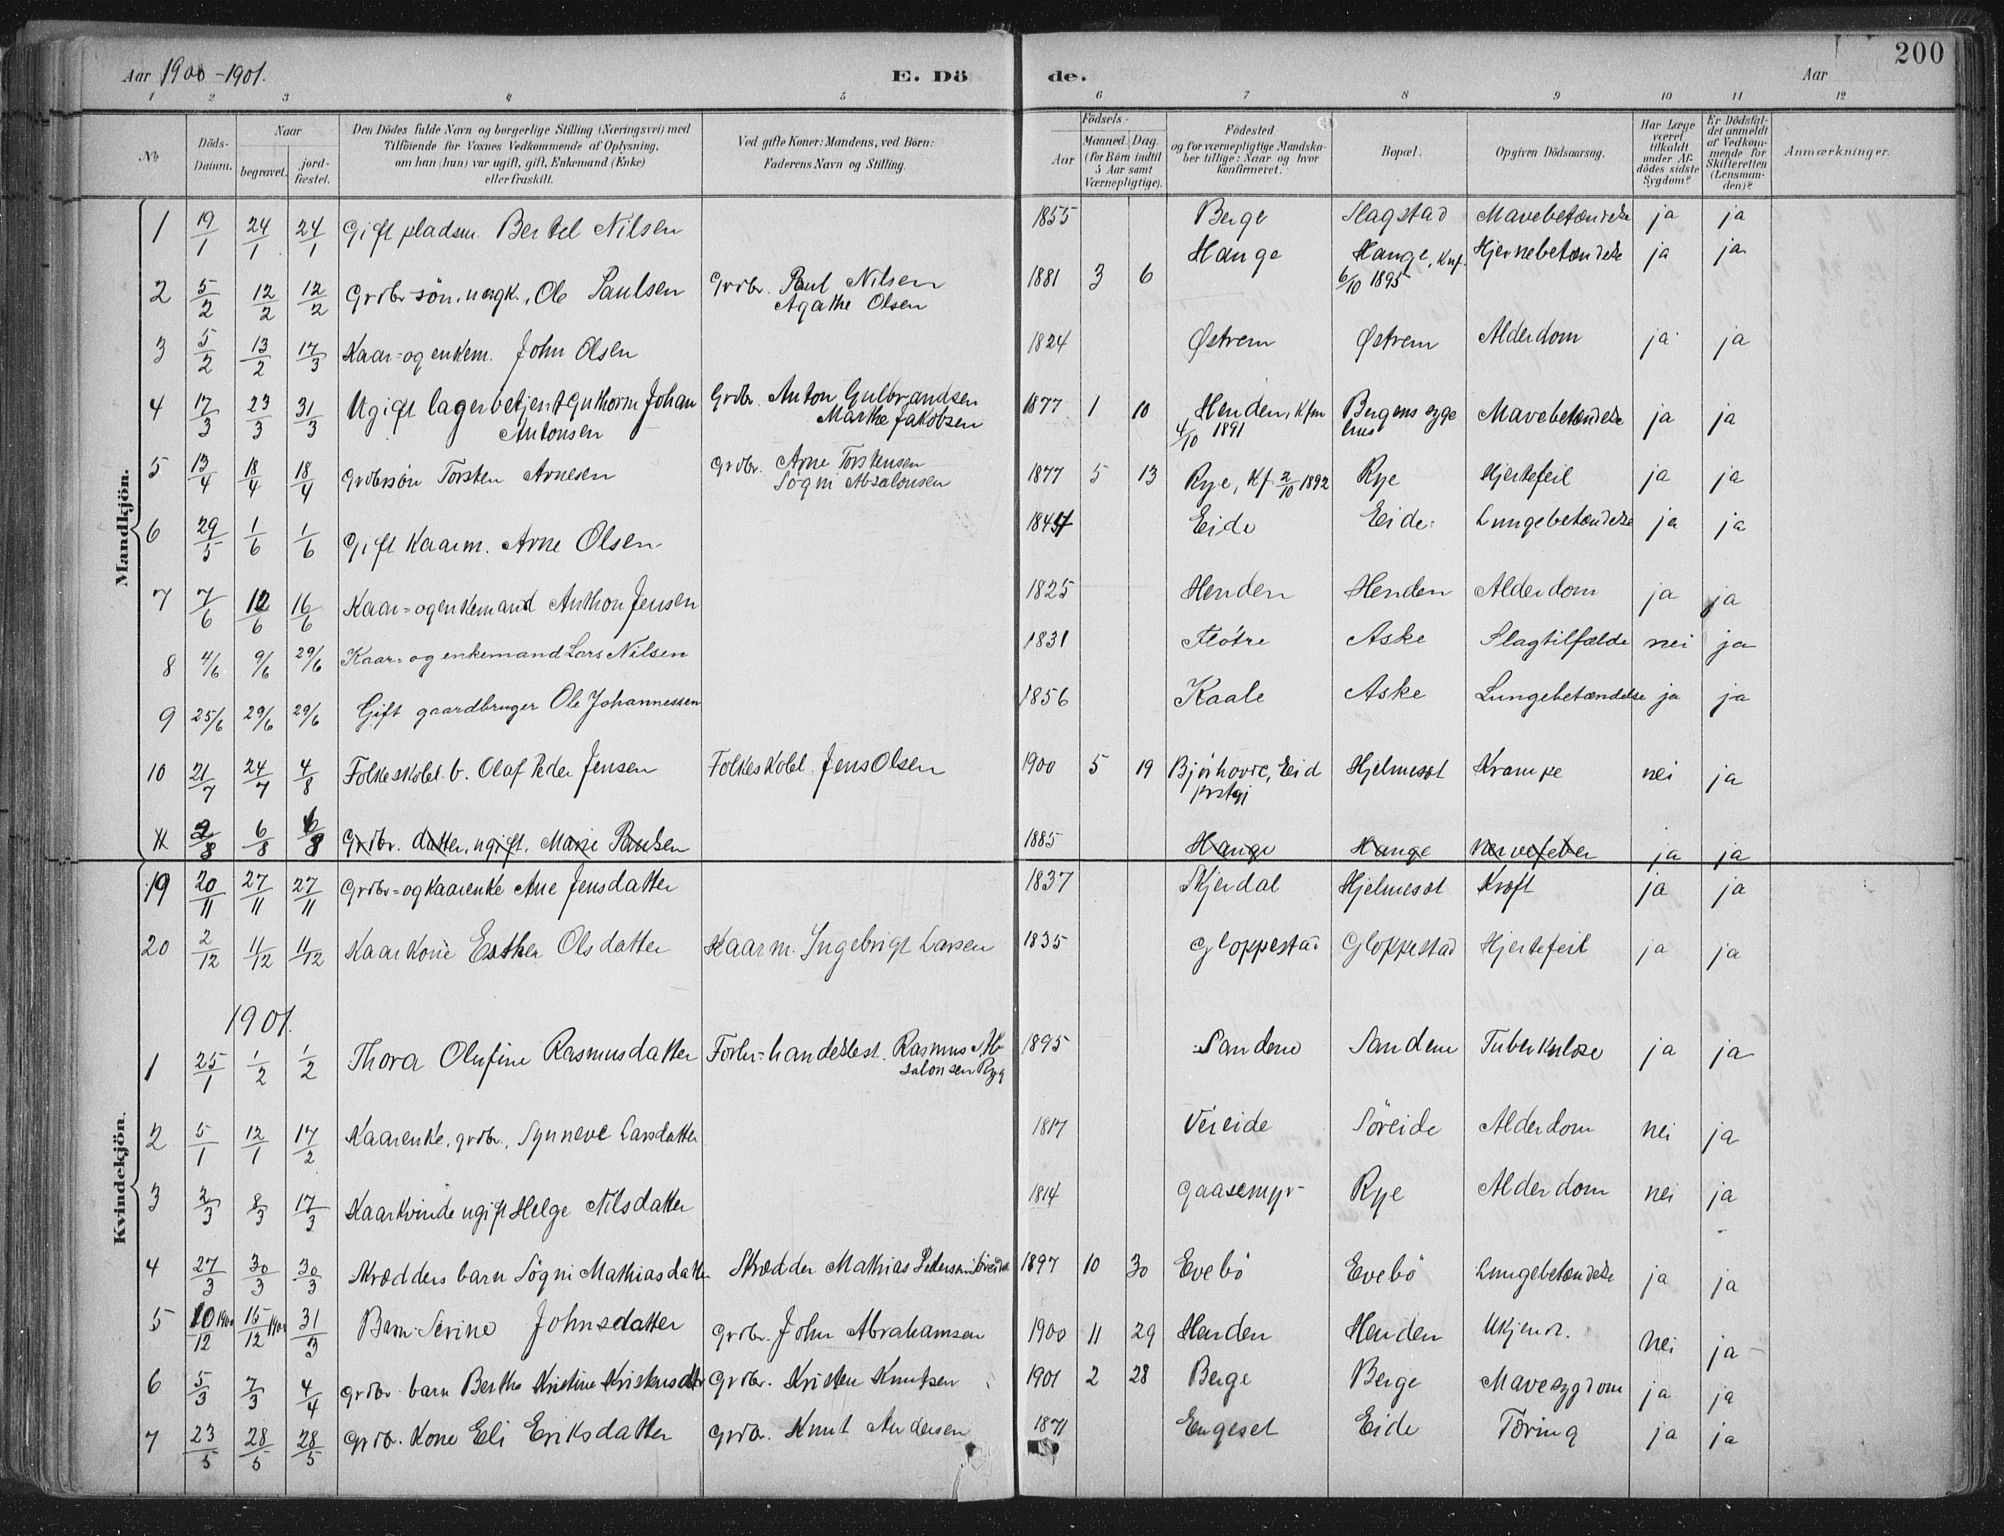 Aar 1900-1901. E. Dö de. Aar 200
1 2 3 4 5 6 7 8 9 10 11 12
No
Döds-Datum.
Naar
begravet.
jordfæstet.
Den Dödes fulde Navn og borgerlige Stilling (Næringsvei) med
Tilföiende for Voxnes Vedkommende af Oplysning,
om han (hun) var ugift, gift, Enkemand (Enke)
eller fraskilt.
Ved gifte Koner: Mandens, ved Börn:
Faderens Navn og Stilling.
Födsels-
Aar
Maaned Dag
(for Börn indtil
5 Aar samt
Værnepligtige).
Födested
og for værnepligtige Mandska-
ber tillige: Naar og hvor
konfirmeret.
Bopæl.
Opgiven Dödsaarsag.
Har Læge
været
tilkaldt
under Af-
dödes sidste
Sygdom?
Er Dödsfal-
det anmeldt
af Vedkom-
mende for
Skifteretten
(Lensman-
den)?
Anmærkninger.
Mandkjön.
1 19/1 24/1 24/1 Gift pladsm. Bertel Nilsen 1855 Berge Slagstad Mavebetændelse ja ja
2 5/2 12/2 12/2 Grdbr søn, ungk., Ole Paulsen Grdbr. Paul Nilsen 1881 3 6 Hauge Hauge, Knf. Hjernebetændelse ja ja
Agathe Olsen 6/10 1895
3 5/2 13/2 17/3 Kaar- og enkem. John Olsen 1824 Østrem Østrem Alderdom ja ja
4 17/3 23/3 31/3 Ugift lagerbetjent Guthorm Johan Grdbr. Anton Gulbrandsen 1877 1 10 Henden, Kfm Bergens syge Mavebetændelse ja ja
Antonsen Marthe Jakobsen 4/10 1891 hus
5 13/4 18/4 18/4 Grdbrsøn Torsten Arnesen Grdbr. Arne Torstensen 1877 5 13 Rye, Kf. 2/10 1892 Rye Hjertefeil ja ja
Søgni Absalonsen
6 29/5 1/6 1/6 Gift Kaarm. Arne Olsen Eide Eide Lungebetændelse ja ja
7 7/6 12/6 16/6 Kaar- og enkemand Anthon Jensen 1825 Henden Henden Alderdom ja ja
8 4/6 9/6 29/6 Kaar- og enkemand Lars Nilsen 1831 Fløtre Aske Slagtilfælde nei ja
9 25/6 29/6 29/6 Gift gaardbruger Ole Johannessen 1856 Kaale Aske Lungebetændelse ja ja
10 21/7 24/7 4/8 Folkeskolel. b. Olaf Peder Jensen Folkeskolel. Jens Olsen 1900 5 19 Bjørhovde, Eid Hjelmeset Krampe nei ja
prstgj
11 2/8 6/8 6/8 Grdbr. datter, ugift, Marie Paulsen 1885 Hauge Hauge Nervefeber ja ja
Kvindekjön.
19 20/11 27/11 27/11 Grdbr- og Kaarenke Ane Jensdatter 1837 Skjerdal Hjelmeset Kræft ja ja
20 2/12 11/12 11/12 Kaarkone Esther Olsdatter Kaarm. Ingebrigt Larsen 1835 Gloppestad Gloppestad Hjertefeil ja ja
1901.
1 25/1 1/2 1/2 Thora Olufine Rasmusdatter Forhv. handelsbest. Rasmus Ab- 1895 Sandene Sandene Tuberkulose ja ja
salonsen Ryg
2 5/1 12/1 17/2 Kaarenke, grdbr., Synneve Larsdatter 1817 Vereide Søreide Alderdom nei ja
3 2/3 8/3 17/3 Kaarkvinde ugift Helge Nilsdatter 1814 Gaasemyr Rye Alderdom nei ja
4 27/3 30/3 30/3 Skrædders barn Søgni Mathiasdatter Skrædder Mathias Pedersen 1897 10 30 Evebø Evebø Lungebetændelse ja ja
5 10/12 1900 15/12 1900 31/3 Barn Serine Johnsdatter Grdbr. John Abrahamsen 1900 11 29 Henden Henden Ukjendt. nei ja
6 5/3 7/3 4/4 Grdbr barn Berthe Kristine Kristensdtr Grdbr. Kristen Knutsen 1901 2 28 Berge Berge Mavesygdom ja ja
7 23/5 28/5 28/5 Grdbr. Kone Eli Eriksdatter Grdbr. Knut Andersen 1871 Engeset Eide Tæring ja ja